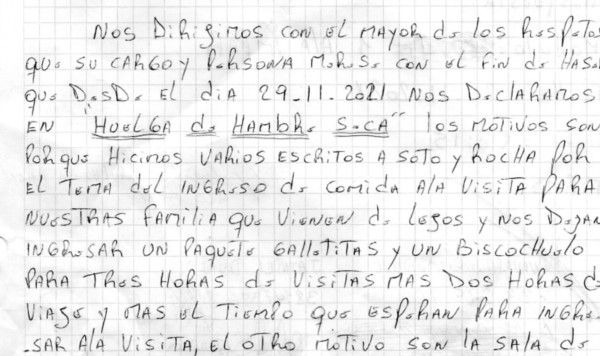 NOS DIRIGIMOS CON EL MAYOR de los RESPETOS
QUE SU CARGO y PERSONA MERESE CON EL FIN de HASE
QUE DESDE EL dIA 29-11-2021 NOS DECLARAMOS
EN "HUELGA de HAMBRE SECA" los MOTIVOS SON
PORQUE HICIMOS VARIOS ESCRITOS A SOTO y ROCHA POR
EL TEMA del INGRESO de COMIDA A lA VISITA PARA
NUESTRAS FAMILIA QUE VIENEN de LEJOS y NOS DEJAN
INGRESAR UN PAQUETE GALLETITAS y UN BISCOCHUELO
PARA TRES HORAS de VISITAS MAS DOS HORAS d
VIAJE y MAS EL TIEMPO QUE ESPERAN PARA INGRE
-SAR A lA VISITA, EL OTRO MOTIVO SON LA SALA de